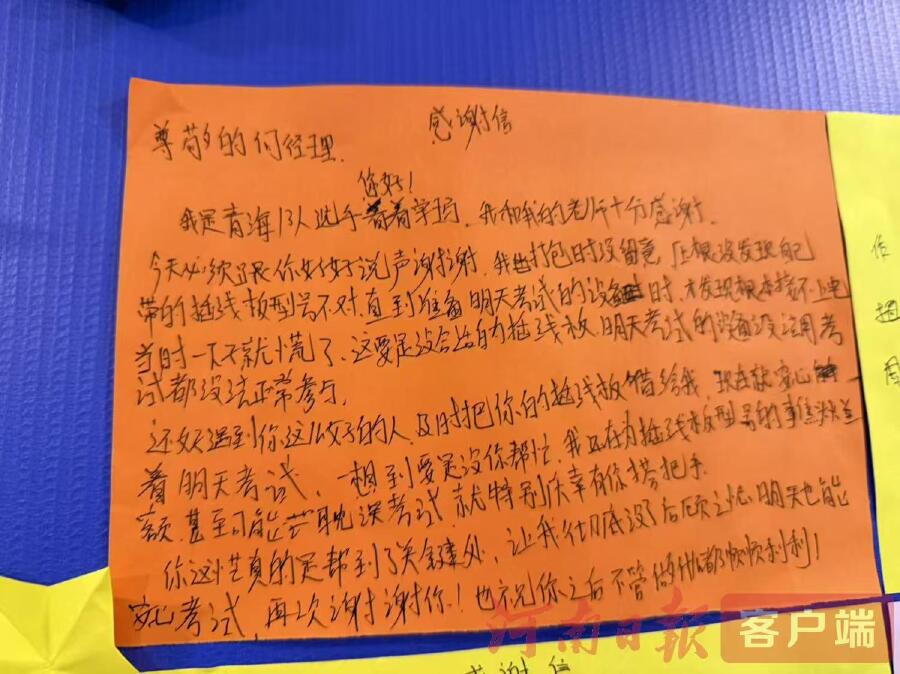 感谢信
尊敬的何经理
您好！
我是青海队选手 我和我的老师十分感谢.
今天必须跟你好好说声谢谢. 我打包时没留意 压根没发现自己
带的插线板型号不对,直到准备明天考试的设备时,才发现根本接不上电
当时一下就慌了、这要是没合适的插线板,明天考试的设备没法用考
试都没法正常参与.
还好遇到你这么好的人,及时把你的插线板借给我 现在就安心
着明天考试、一想到要是没你帮忙,我还在为插线板型号的事焦头烂
额,甚至可能耽误考试,就特别庆幸有你搭把手.
你这些真的是帮到了关键处,让我彻底没了后顾之忧.明天也能
安心考试,再次谢谢你！也祝你之后不管做什么都顺顺利利！
感谢信
河南日报 客户端